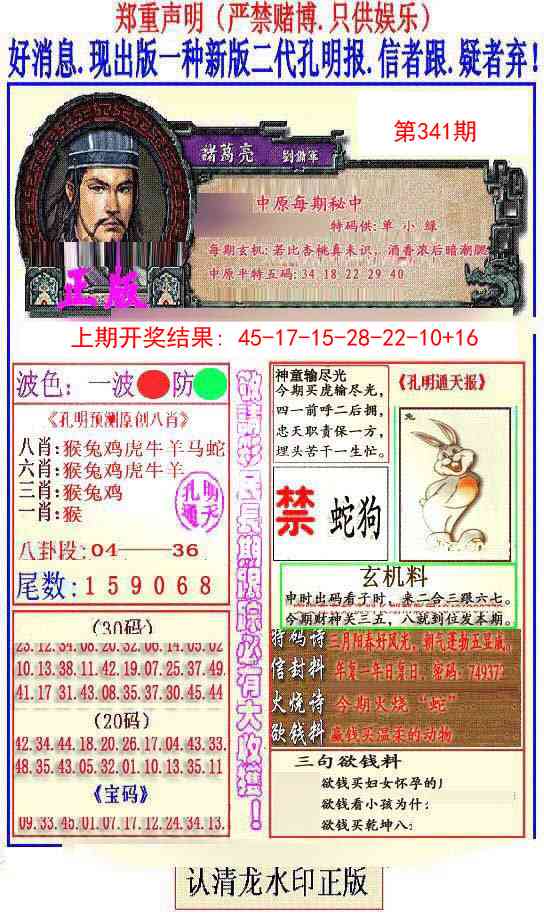 郑重声明（严禁赌博.只供娱乐）
好消息.现出版一种新版二代孔明报.信者跟.疑者弃！
第341期
諸葛亮
中原每期秘中
特码供:单 小 绿
每期玄机:若比杏桃真未识，酒香浓后暗潮
中原平特五码: 34 18 22 29 40
正版
上期开奖结果: 45-17-15-28-22-10+16
波色: 一波 防
《孔明预测原创八肖》
八肖:猴兔鸡虎牛羊马蛇
六肖:猴兔鸡虎牛羊
三肖:猴兔鸡
一肖:猴
孔明通天
八卦段:04——36
尾数:159068
(30码)
23.12.34.08.20.32.06.14.05.02
10.13.38.11.42.19.07.25.37.49
41.17.31.43.08.35.37.30.45.44
(20码)
42.34.44.18.20.26.17.04.43.33.
48.35.43.05.32.01.10.13.35.11
《宝码》
09.33.45.01.07.17.12.24.34.13.
敬請彩民長期跟踪必有大收獲！
神童输尽光
今期买虎输尽光，
四一前呼二后拥，
忠天职责保一方，
埋头苦干一生忙。
《孔明通天报》
兔
禁 蛇狗
玄机料
申时出码看子时，来二合三跟六七。
今期财神关三五，八就到位发本期。
特码诗 三月阳春好风光，朝气蓬勃五亚威。
信封料 年复一年日复日，密码：749372
火烧诗 今期火烧“蛇”
欲钱料 赢钱买温柔的动物
三句欲钱料
欲钱买妇女怀孕的)
欲钱看小孩为什;
欲钱买乾坤八;
认清龙水印正版